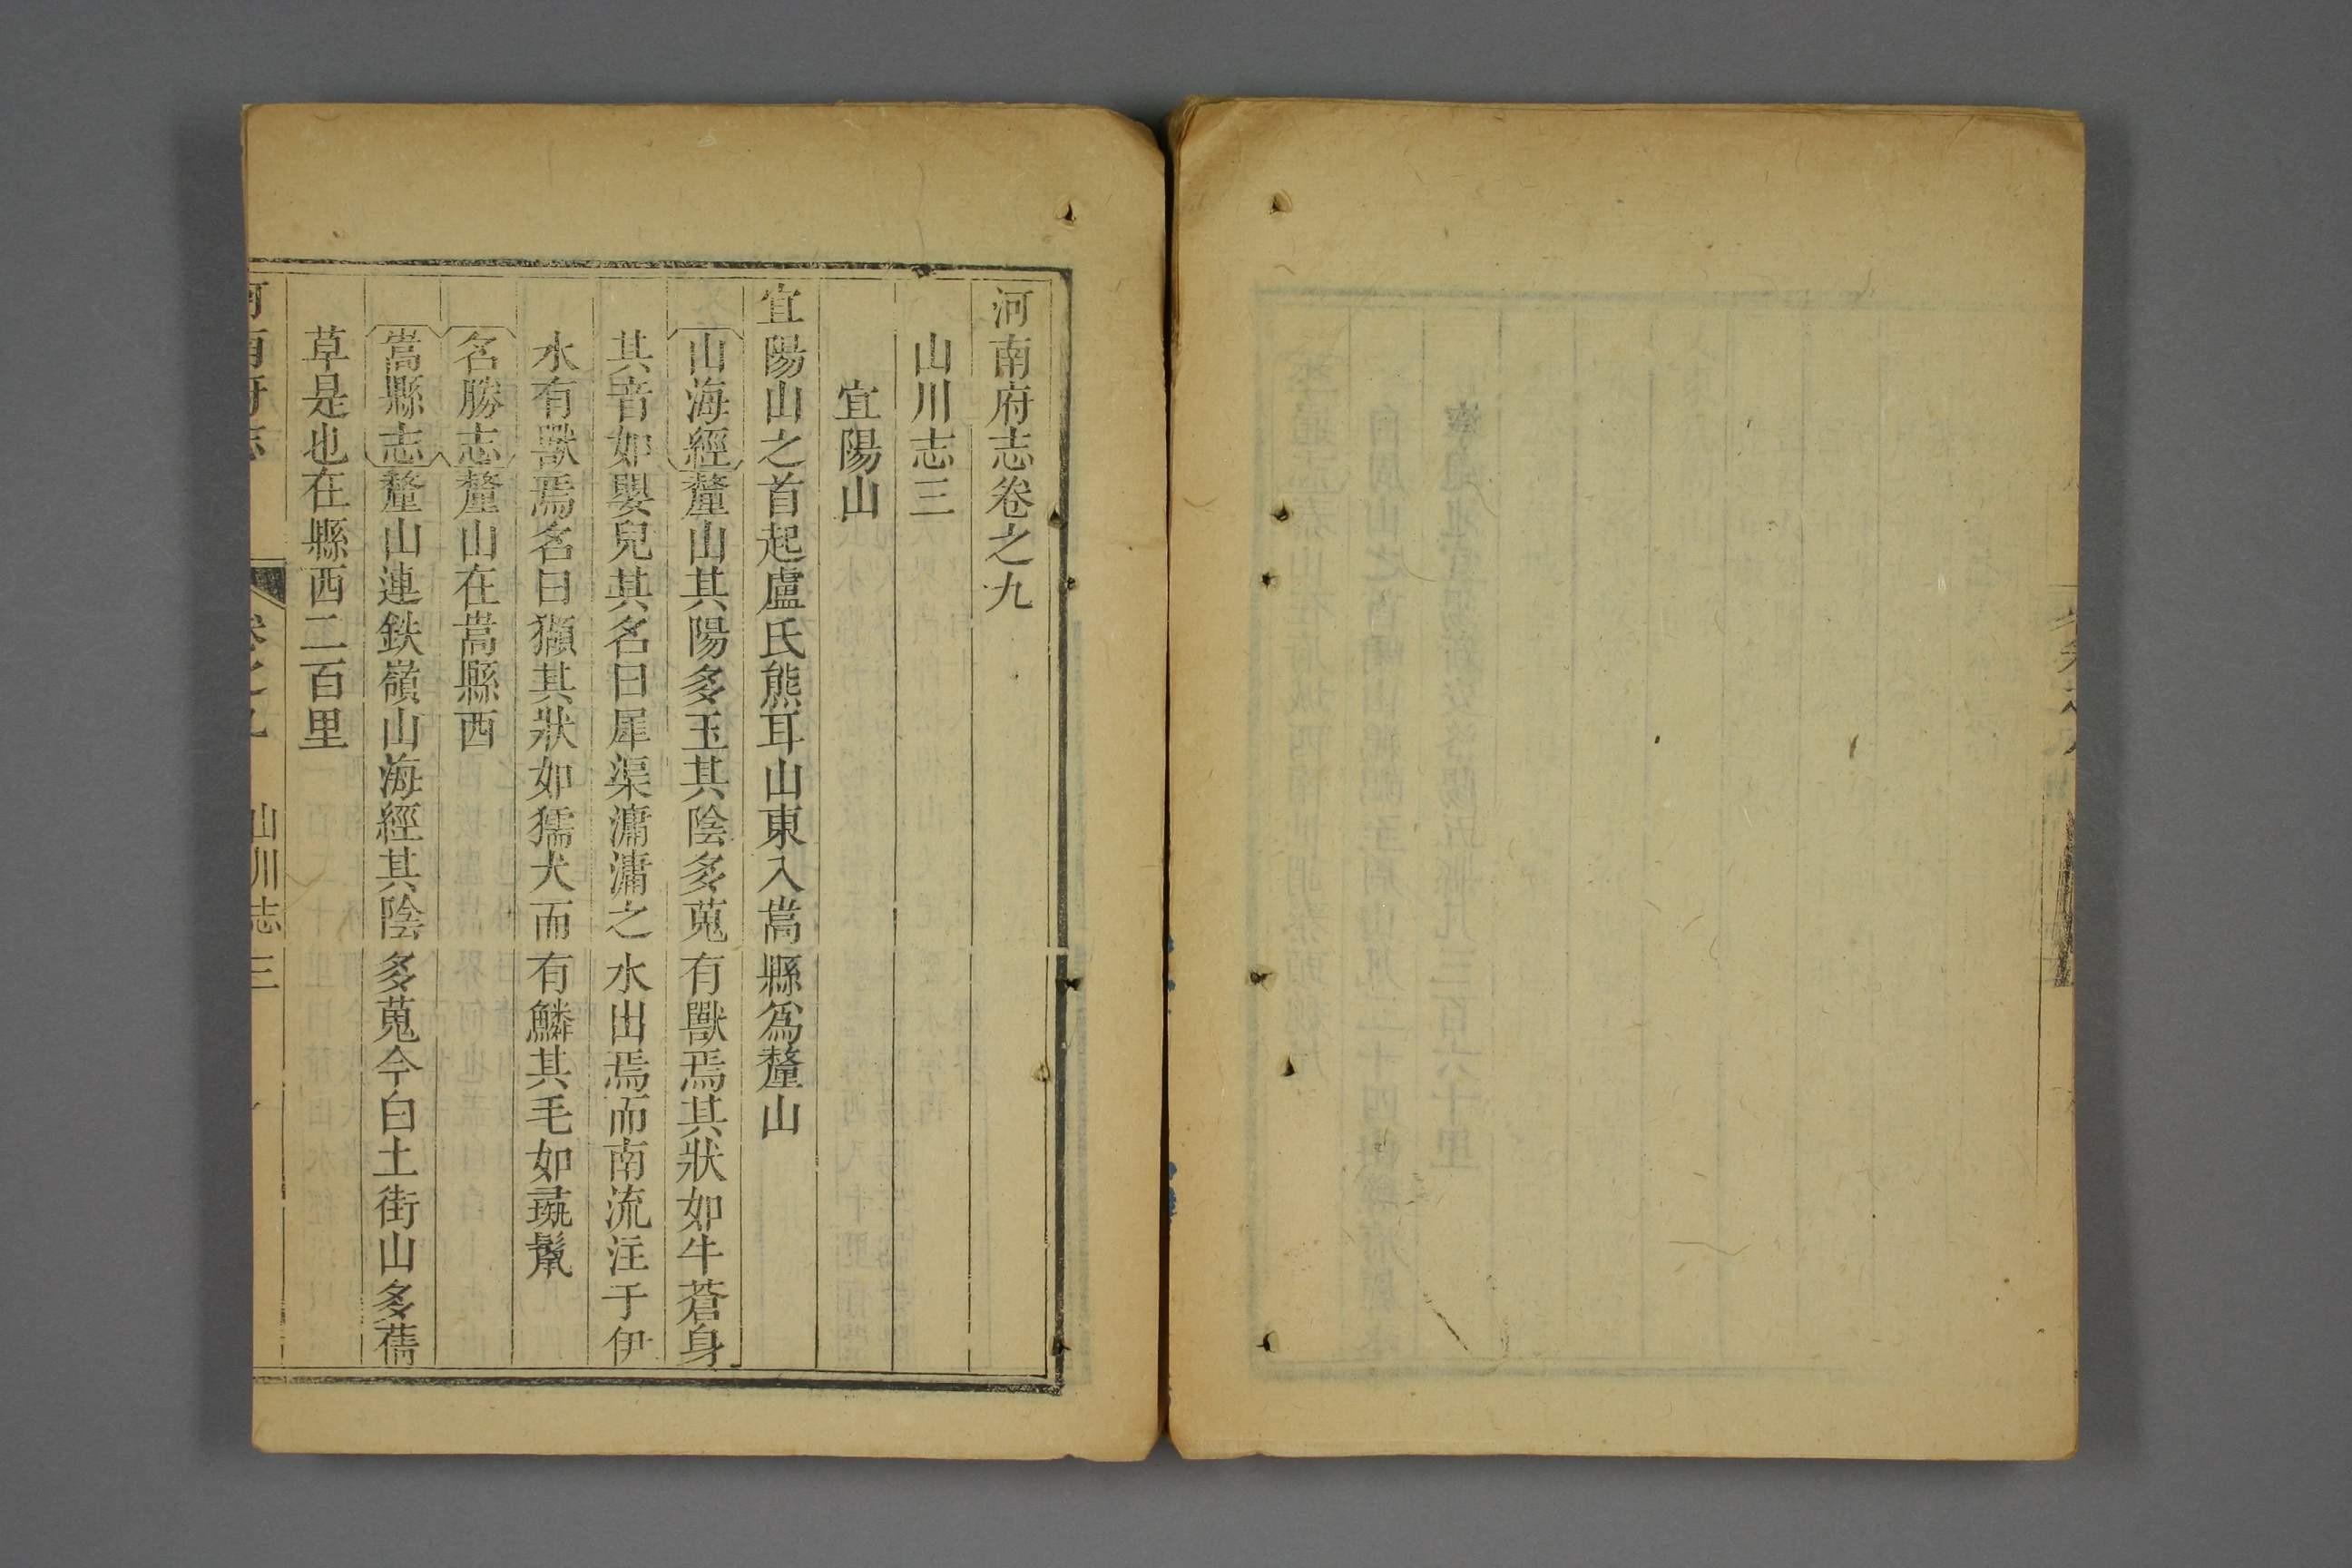 河南府志卷之九
山川志三
宜陽山
宜陽山之首起盧氏熊耳山東入嵩縣爲釐山
山海經釐山其陽多玉其陰多蒐有獸焉其狀如牛蒼身
其音如嬰兒其名曰犀渠滽滽之水出焉而南流注于伊
水有獸焉名曰獺其狀如獳犬而有鱗其毛如彘鬣
名勝志釐山在嵩縣西
嵩縣志釐山連鉄嶺山海經其陰多蒐今白土街山多蒨
草是也在縣西二百里
河南府志 卷之九 山川志三